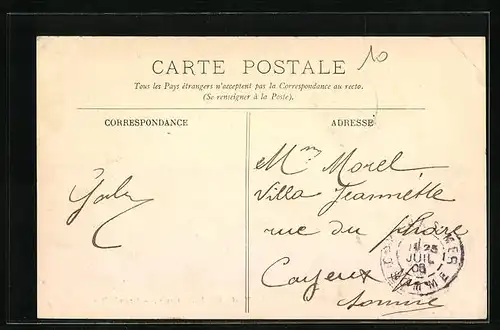 10
CARTE POSTALE
Tous les Pays étrangers n'acceptent pas la Correspondance au recto.
(Se renseigner à la Poste).
CORRESPONDANCE
ADRESSE
Mme Morel
Villa Jeannette
rue du phare
Cayeux
Somme
25
JUIL
08